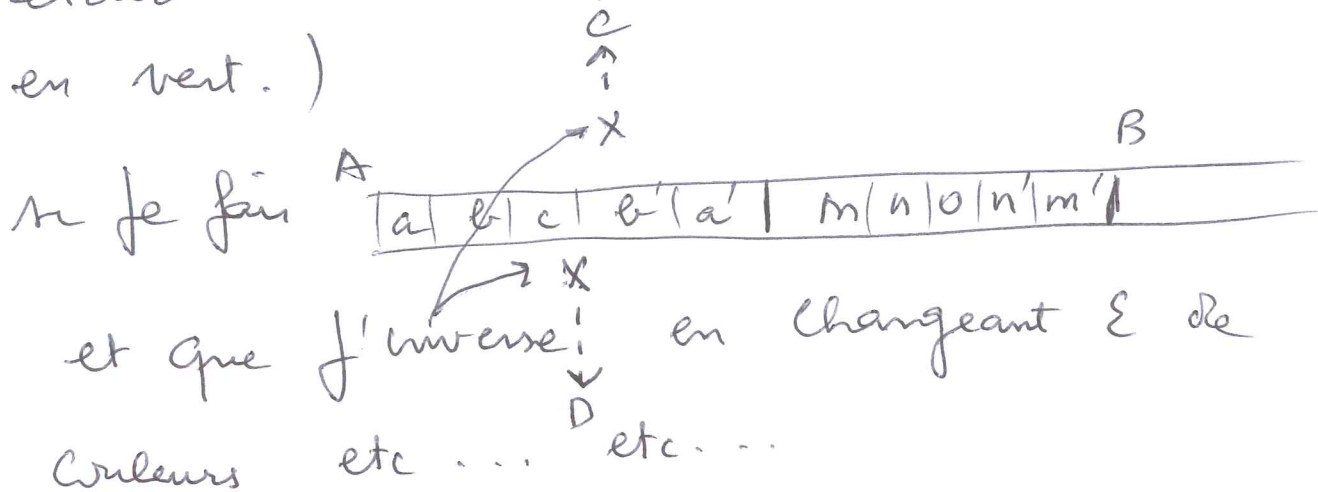 en vert.)
C
X
A
B
si je fais |a|b|c|b'|a'| m|n|o|n'|m'|
X
et que j'inverse en changeant & de
D
couleurs etc ... etc....